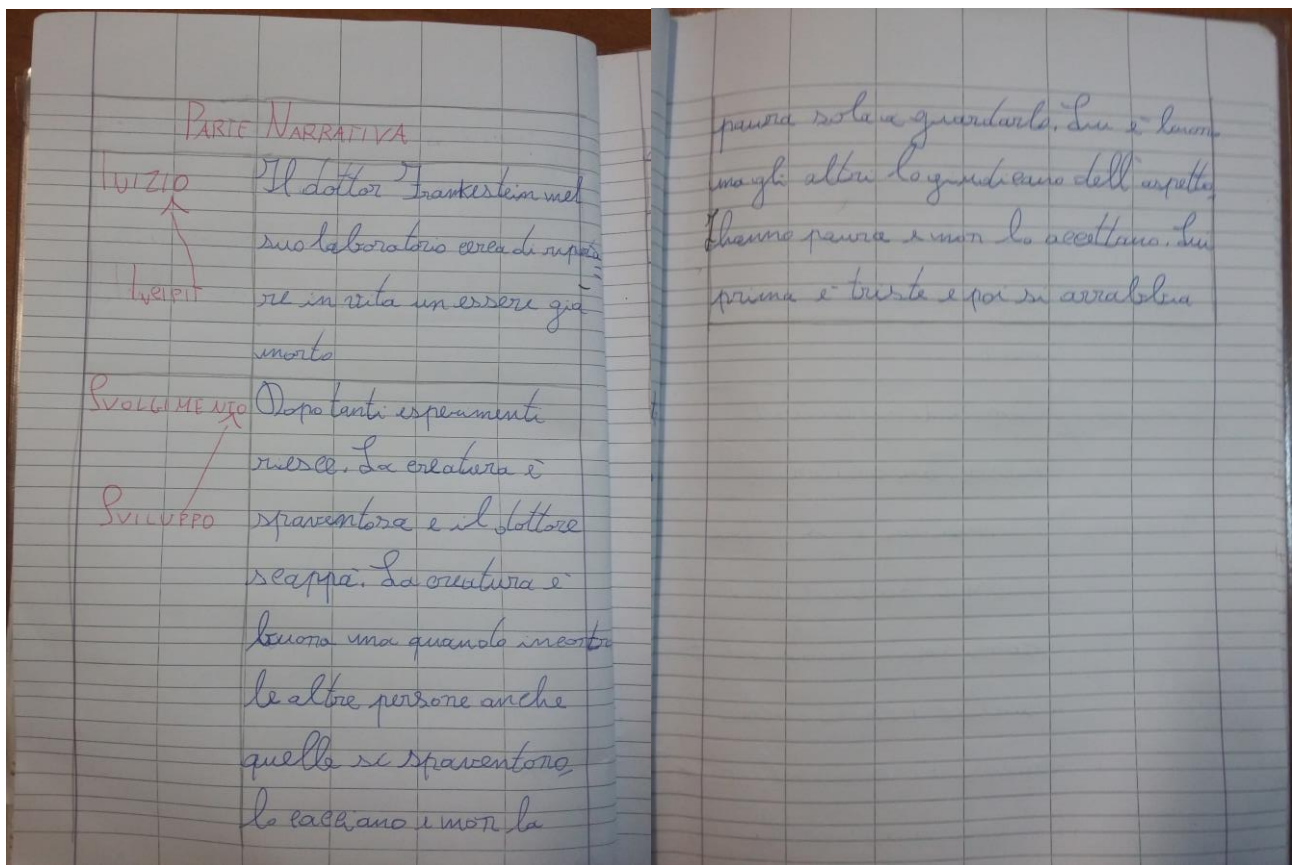 PARTE NARRATIVA
INIZIO Il dottor Frankestein nel
suo laboratorio cerca di riporta=
INCIPIT re in vita un essere già
morto
SVOLGIMENTO Dopo tanti esperimenti
riesce. La creatura è
SVILUPPO spaventosa e il dottore
scappa. La creatura è
buona ma quando incontra
le altre persone anche
quelle si spaventono,
lo cacciano e non la
paura solo a guardarlo. Lui è buono
ma gli altri lo giudicano dell'aspetto,
hanno paura e non lo accettano. Lui
prima è triste e poi si arrabbia